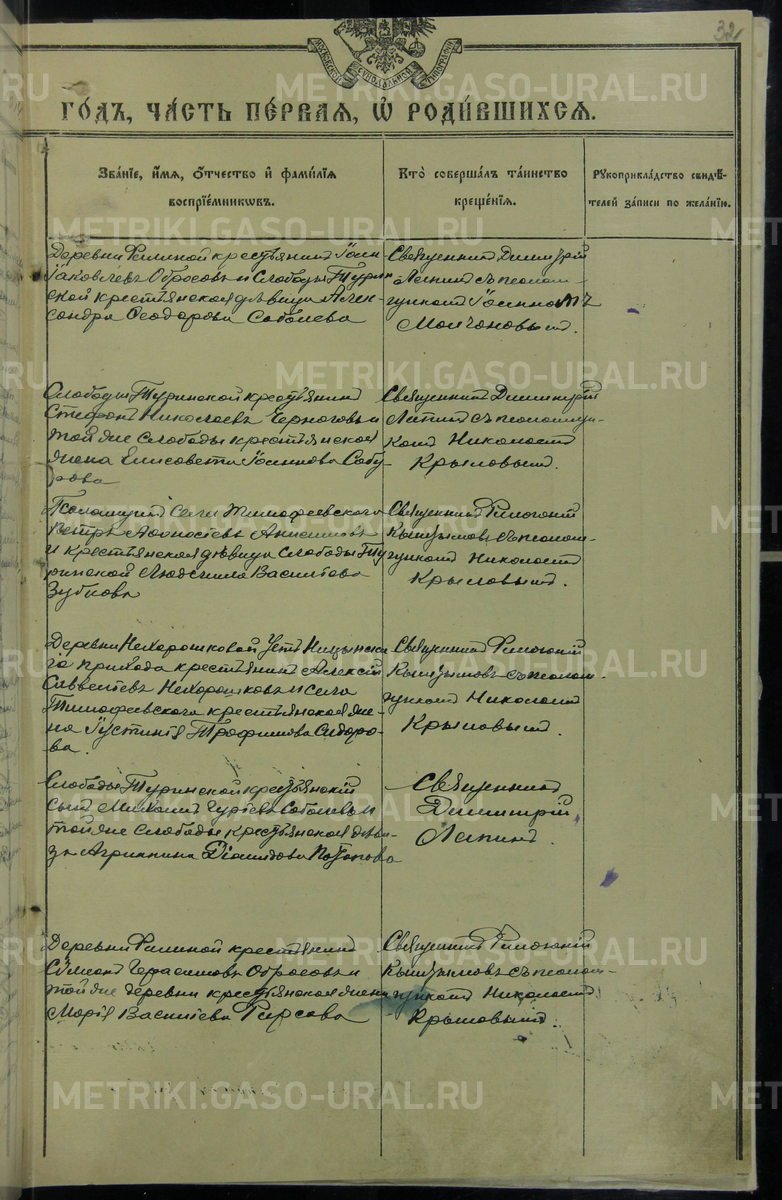 32
МОСКОВСКОЙ СѴНОДАЛЬНОЙ ТИПОГРАФІИ
ГО́ДЪ, ЧА́СТЬ ПЕ́РВАЯ, Ѡ҆ РОДИ́ВШИХСѦ.
Зва́нїе, и҆́мѧ, ѻ҆́тчество и҆ фами́лїѧ
воспрїе́мникѡвъ.
Кто̀ соверша́лъ та́инство
креще́нїѧ.
Рꙋкоприкла́дство свидѣ́-
телей за́писи по жела́нїю.
Деревни крестьянинъ Іоаннъ
Іаковлевъ Обросовъ и Слободы Турин
ской крестьянская дѣвица Алек-
сандра Ѳеодорова Соболева
Священникъ Димитрій
Лапинъ съ псалом-
щикомъ Іоанномъ
Молчановымъ.
Слободы Туринской крестьянинъ
Стефанъ Николаевъ и
той же Слободы крестьянская
жена Елисавета Іоаннова Сабу-
рова
Священникъ Димитрій
Лапинъ съ псаломщи-
комъ Николаемъ
Крыловымъ.
Псаломщикъ села Тимофеевскаго
Петръ Аѳанасіевъ
и крестьянская дѣвица Слободы Ту
ринской Людмила Васильева
Зубкова
Священникъ
съ псалом-
щикомъ Николаемъ
Крыловымъ.
Деревни Нехорошковой Усть Ницынска
го прихода крестьянинъ Алексій
Савватіевъ Нехорошковъ и села
Тимофеевскаго крестьянская же-
на Іустинія Трофимова Сидоро-
ва.
Священникъ
съ псалом-
щикомъ Николаемъ
Крыловымъ.
Слободы Туринской крестьянскій
сынъ Михаилъ Гурьевъ Соболевъ и
той же Слободы крестьянская дѣви-
ца Агриппина Потапова
Священникъ
Димитрій
Лапинъ.
Деревни крестьянинъ
Сѵмеонъ Герасимовъ Обросовъ и
той же деревни крестьянская жена
Марія Васильева Фирсова
Священникъ
съ псалом-
щикомъ Николаемъ
Крыловымъ.
METRIKI.GASO-URAL.RU